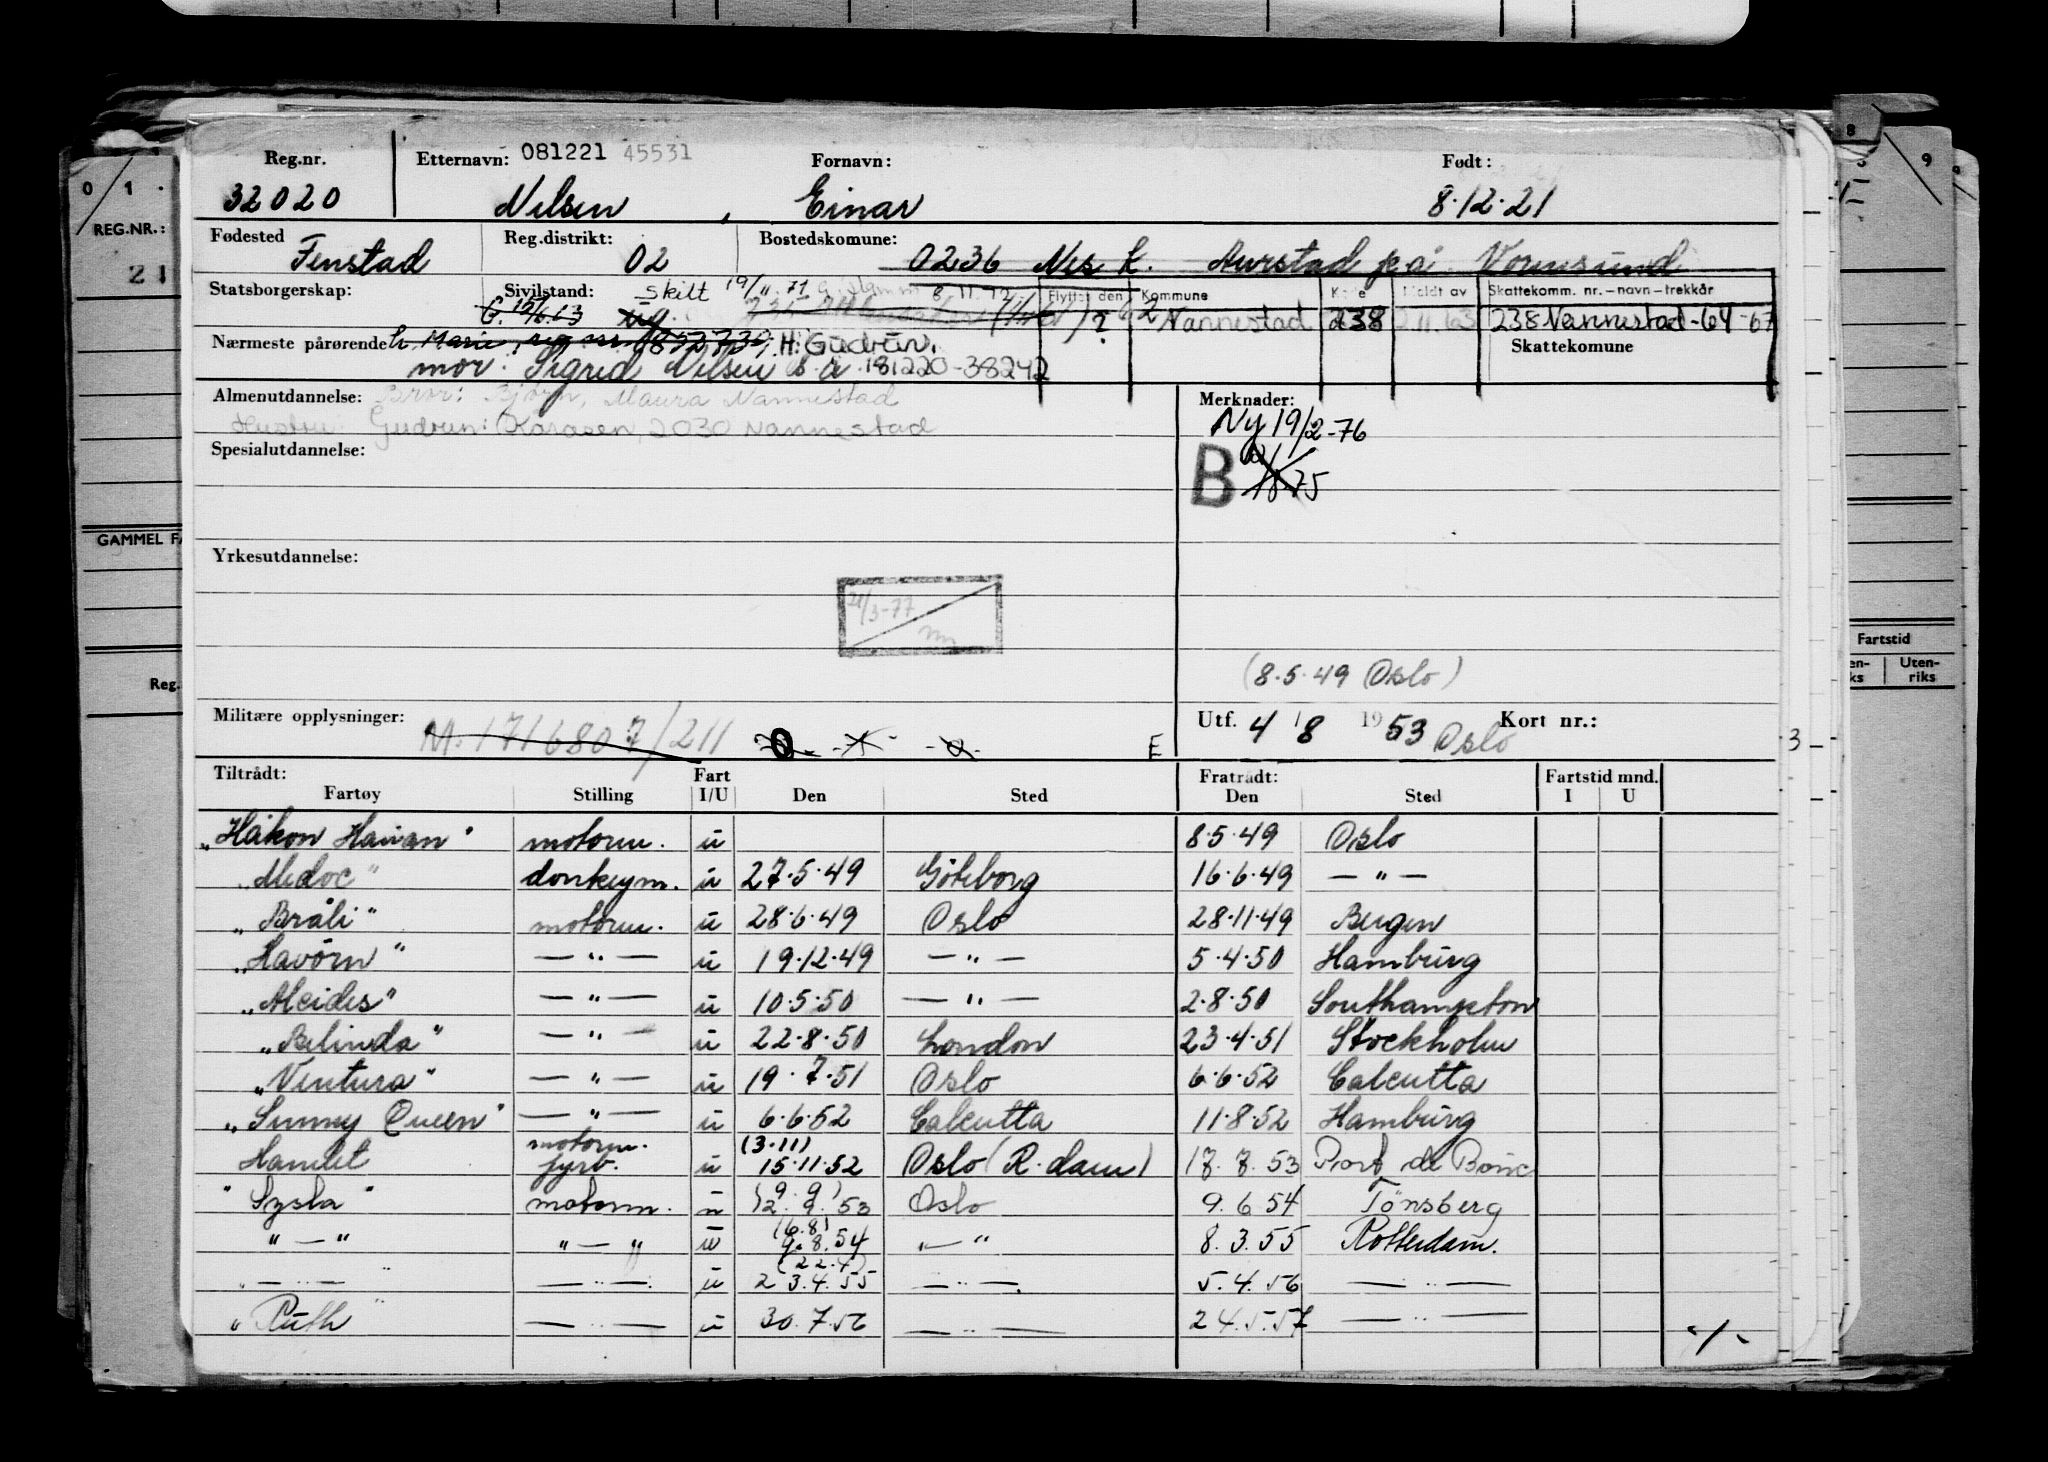 Reg.nr. Etternavn: 081221 45531 Fornavn: Født:
32020 Nilsen, Einar 8.12.21
Fødested Reg.distrikt: Bostedskomune:
Fenstad 02 0236 Nes k. Aurstad p.å. Vormsund
Statsborgerskap: Sivilstand: skilt 19/11.71 8.11.72. Flyttet den Kommune Kode Meldt av Skattekomm. nr.–navn–trekkår
G. 15/6.63 ug. ? Nannestad 238 2.11.63 238 Nannestad-64-67
Nærmeste pårørende h. Marie, reg nr. H: Gudrun. Skattekomune
mor: Sigrid Nilsen s.a. 181220-38242
Almenutdannelse: Bror: Bjørn, Maura Nannestad Merknader:
Hustru: Gudrun: Kåråsen, 2030 Nannestad Ny 19/2-76
Spesialutdannelse: B 75
Yrkesutdannelse:
21/3-77
(8.5.49 Oslo)
Militære opplysninger: M. 1716807/211 E Utf. 4/8 1953 Oslo Kort nr.:
Tiltrådt: Fart Fratrådt: Fartstid mnd.
Fartøy Stilling I/U Den Sted Den Sted I U
"Håkon Hauan" motorm. u 8.5.49 Oslo
"Medoc" donkeym. u 27.5.49 Göteborg 16.6.49 — " —
"Bråli" motorm. u 28.6.49 Oslo 28.11.49 Bergen
"Havörn" — " — u 19.12.49 — " — 5.4.50 Hamburg
"Alcides" — " — u 10.5.50 — " — 2.8.50 Southampton
"Belinda" — " — u 22.8.50 London 23.4.51 Stockholm
"Ventura" — " — u 19.7.51 Oslo 6.6.52 Calcutta
"Sunny Queen" — " — u 6.6.52 Calcutta 11.8.52 Hamburg
motorm. (3.11)
Hamlet fyrb. u 15.11.52 Oslo (R.dam) 17.7.53 Port de Bouc
"Sysla" motorm. u (9.9) 12.9.53 Oslo 9.6.54 Tönsberg
" — " " — " u (6.8) 9.8.54 " — " 8.3.55 Rotterdam.
— " — — " — u (22.4) 23.4.55 — " — 5.4.56 — " —
"Ruth" — " — u 30.7.56 — " — 24.5.57 — " —
-/-
0 1
REG.NR.:
21
GAMMEL
Reg.
8
9
Fartstid
Uten-
riks
3